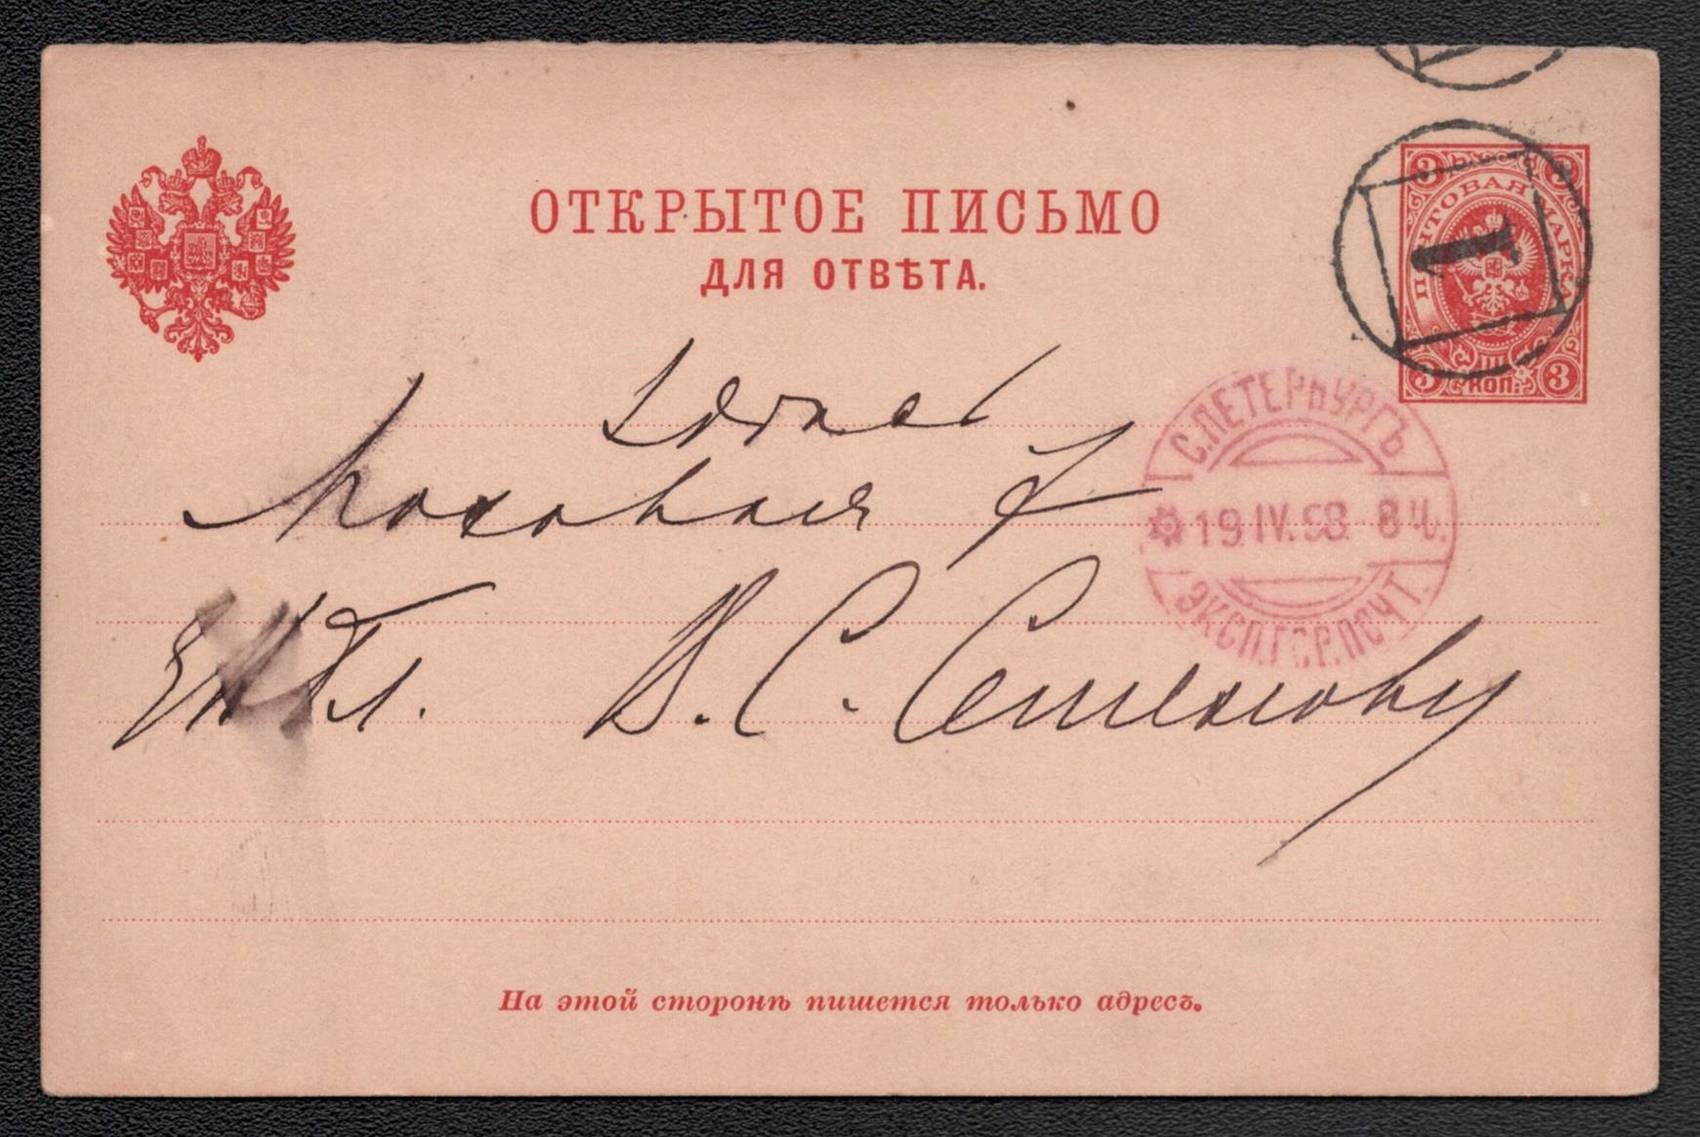 ОТКРЫТОЕ ПИСЬМО
ДЛЯ ОТВѢТА.
3 3
ПОЧТОВАЯ МАРКА
1
3 КОП. 3
С.ПЕТЕРБУРГЪ
19.IV.98. 8 Ч.
ЭКСП.ГОР.ПОЧТ.
Здѣсь
Моховая 7
В. С.
На этой сторонѣ пишется только адресъ.